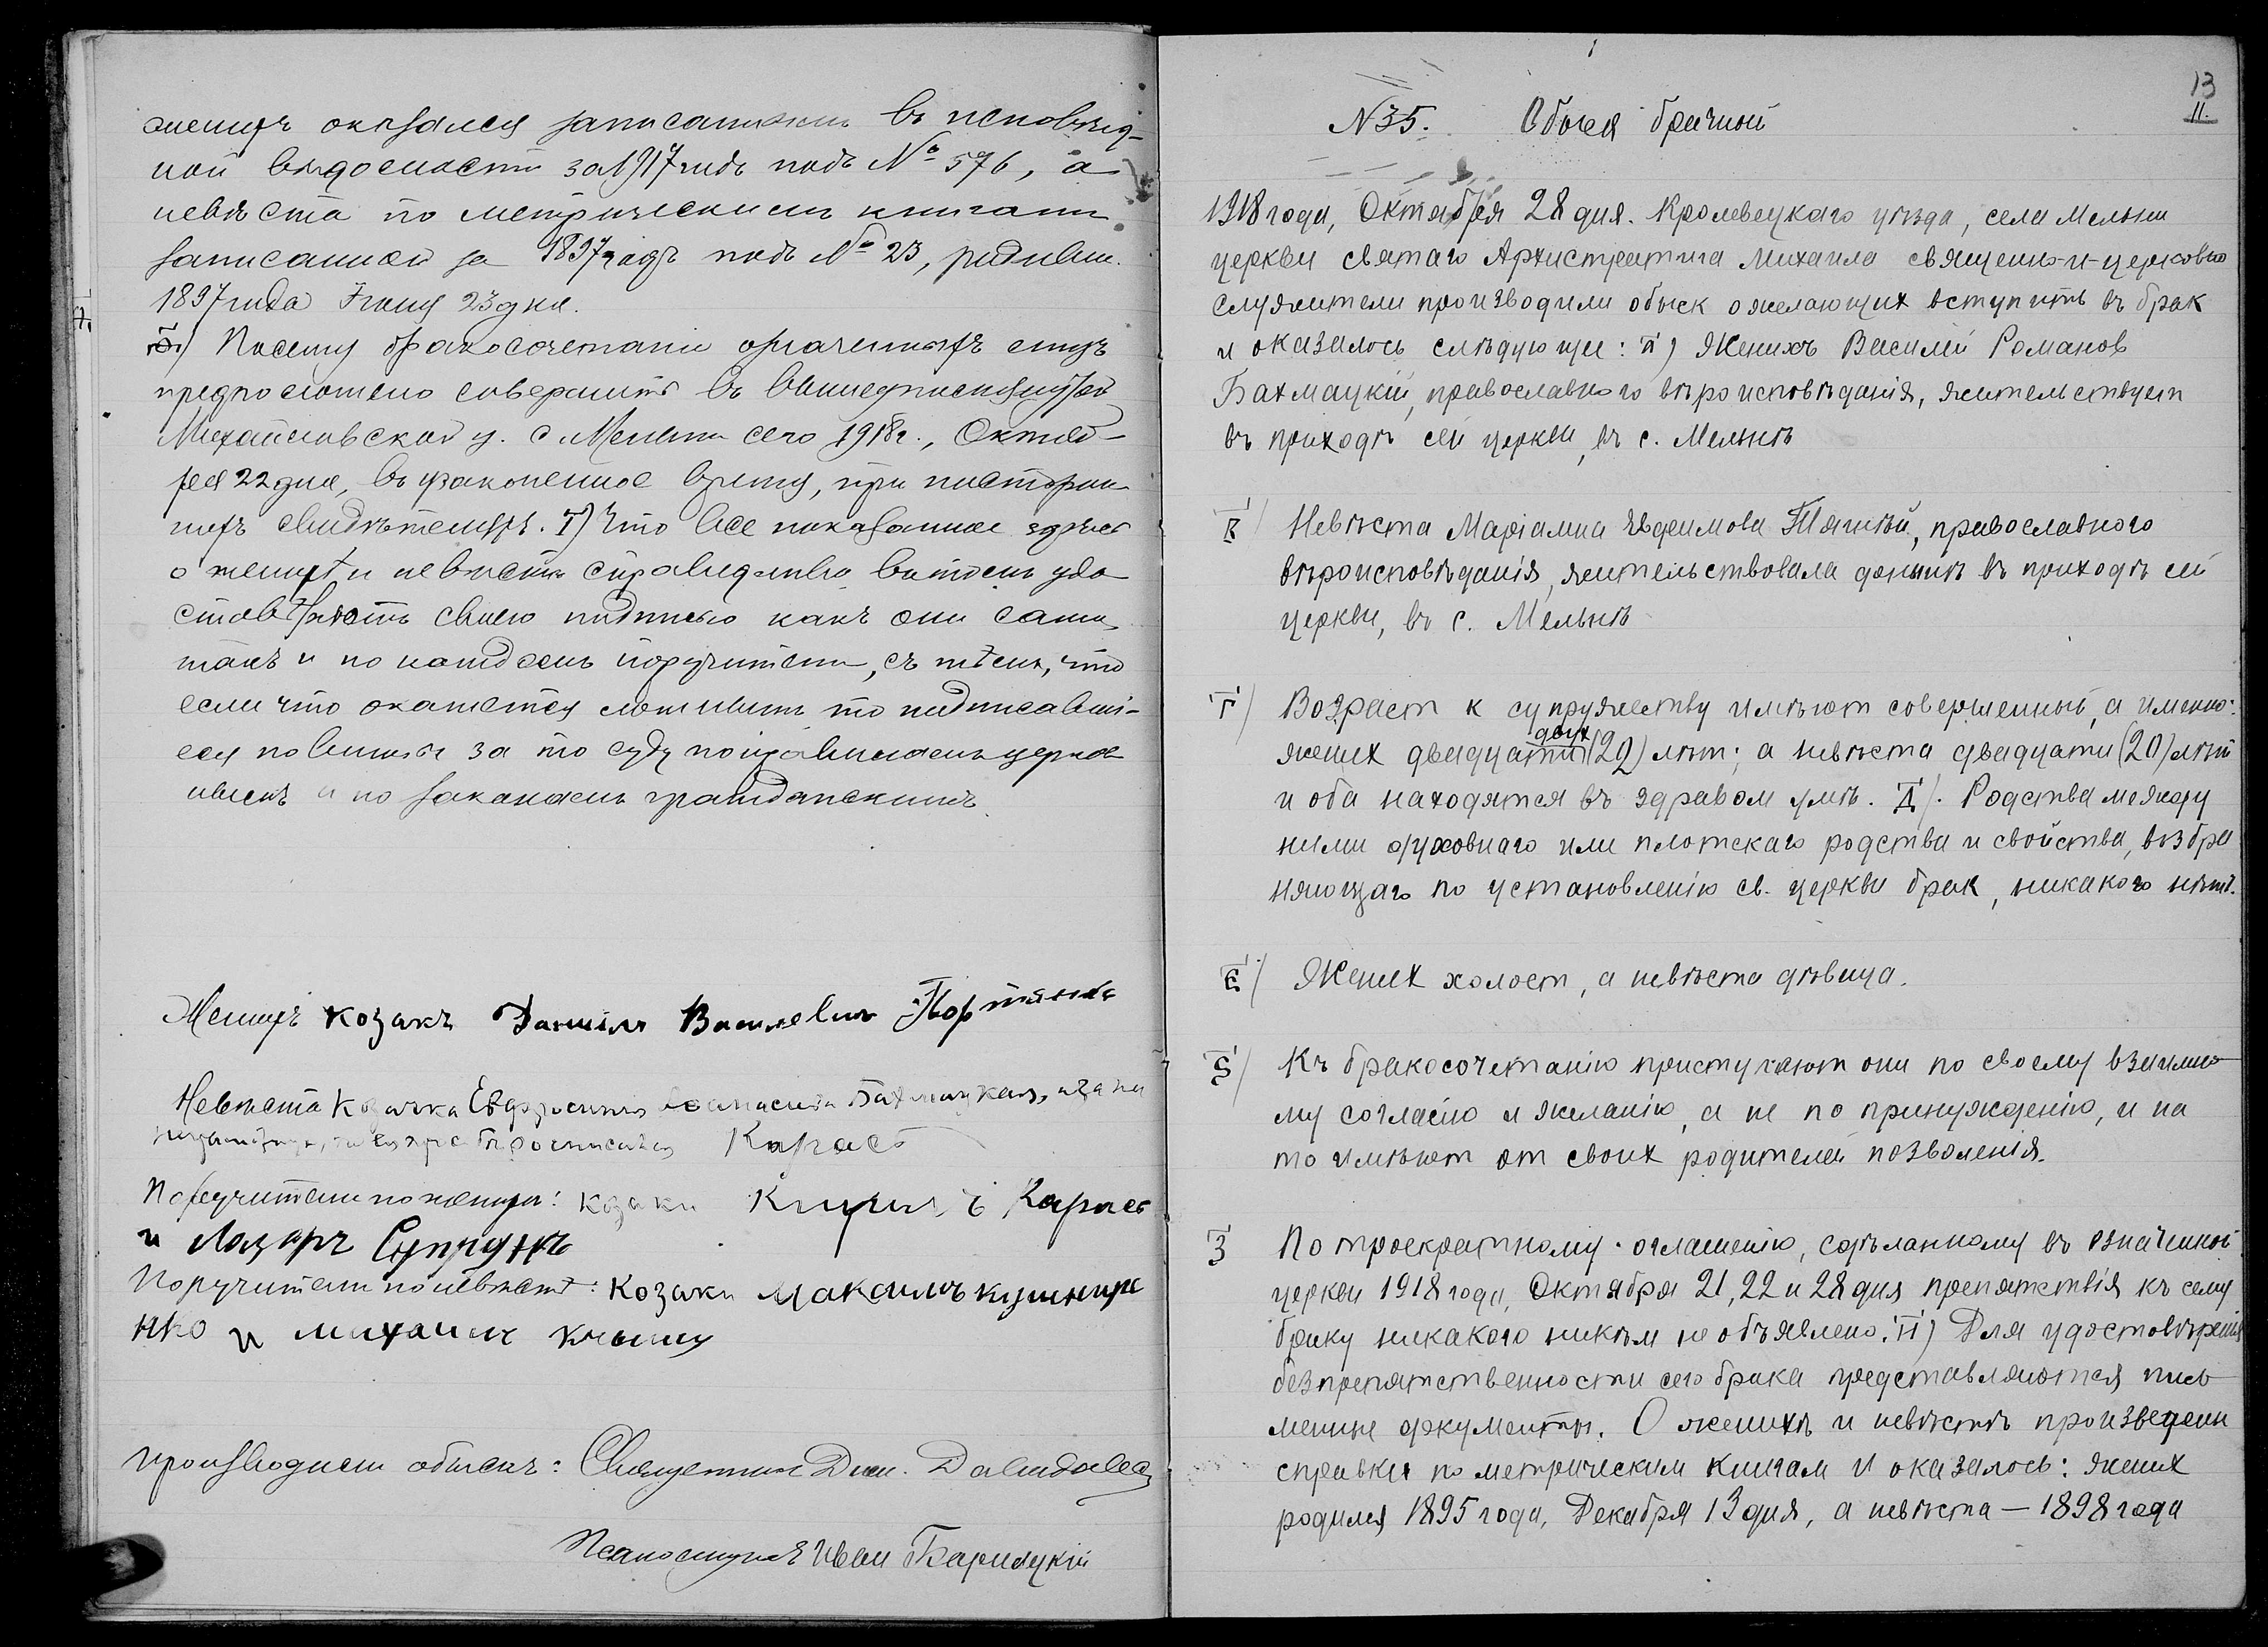 жених оказался записанным въ исповѣд-
ной вѣдомости за 1917 годъ подъ № 576, а
невѣста по метрическимъ книгамъ
записанной за 1897 годъ подъ № 23, родивш.
1897 года Іюня 23 дня.
Посему бракосочетаніе означенныхъ лицъ
предположено совершить въ вышеписанной
Михайловской ц. с. Мельни сего 1918 г., Октяб-
ря 22 дня, въ узаконенное время, при посторон-
нихъ свидѣтеляхъ. І) Что все показанное здѣсь
о женихѣ и невѣстѣ справедливо въ томъ удо-
стовѣряютъ своею подписью какъ они сами,
такъ и по каждомъ поручители, съ тѣмъ, что
если что окажется ложнымъ то подписавші-
еся повинны за то суду по правиламъ церков-
нымъ и по законамъ гражданскимъ.
Женихъ козакъ Даніилъ Василевичъ Портянка
Невѣста Козачка Евфросинія Бахмацкая, а за нее
неграмотную, росписался Карась
Поручители по женихѣ: козаки Кирилъ Карась
и Лазарь Супрунъ
Поручители по невѣстѣ: козаки Максимъ кушнире
нко и михаилъ
производили обыскъ: Священникъ Дим. Давидовс
Псаломщикъ Иван Барилуцкій
13
11.
№35. Обыск брачной
1918 года, Октября 28 дня. Кролевецкаго уѣзда, села Мельни
церкви святаго Архистратига Михаила священно-и-церковно
служители производили обыск о желающих вступить въ брак
и оказалось слѣдующее: а) Жених Василій Романов
Бахмацкій, православнаго вѣроисповѣданія, жительствует
въ приходѣ сей церкви, въ с. Мельнѣ
в/ Невѣста Маріамна Евфимова Тягній, православнаго
вѣроисповѣданія, жительствовала донынѣ въ приходѣ сей
церкви, въ с. Мельнѣ
г/ Возраст к супружеству имѣют совершенный, а именно:
двух
жених двадцати (22) лѣт; а невѣста двадцати (20) лѣт
и оба находятся въ здравом умѣ. Д/. Родства между
ними духовнаго или плотскаго родства и свойства, возбра
няющаго по установленію св. церкви брак, никакого нѣт.
Е/ Жених холост, а невѣста дѣвица.
Ѕ/ Къ бракосочетанію приступают они по своему взаимно
му согласію и желанію, а не по принужденію, и на
то имѣют от своих родителей позволенія.
З По троекратному оглашенію, сдѣланному въ означенной
церкви 1918 года, Октября 21, 22 и 28 дня препятствія къ сему
браку никакого никѣм не объявлено. И) Для удостовѣренія
безпрепятственности сего брака представляются пись
менные документы. О женихѣ и невѣстѣ произведены
справки по метрическим книгам и оказалось: жених
родился 1895 года, Декабря 13 дня, а невѣста — 1898 года